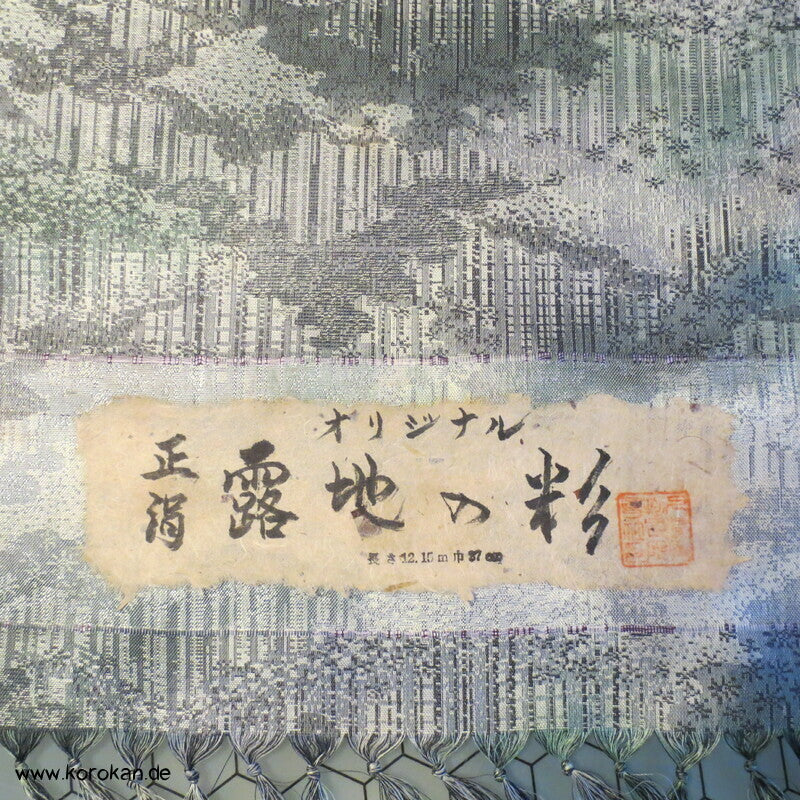 オリジナル
正絹
露地の粉
長さ12.15m巾37cm
www.korokan.de